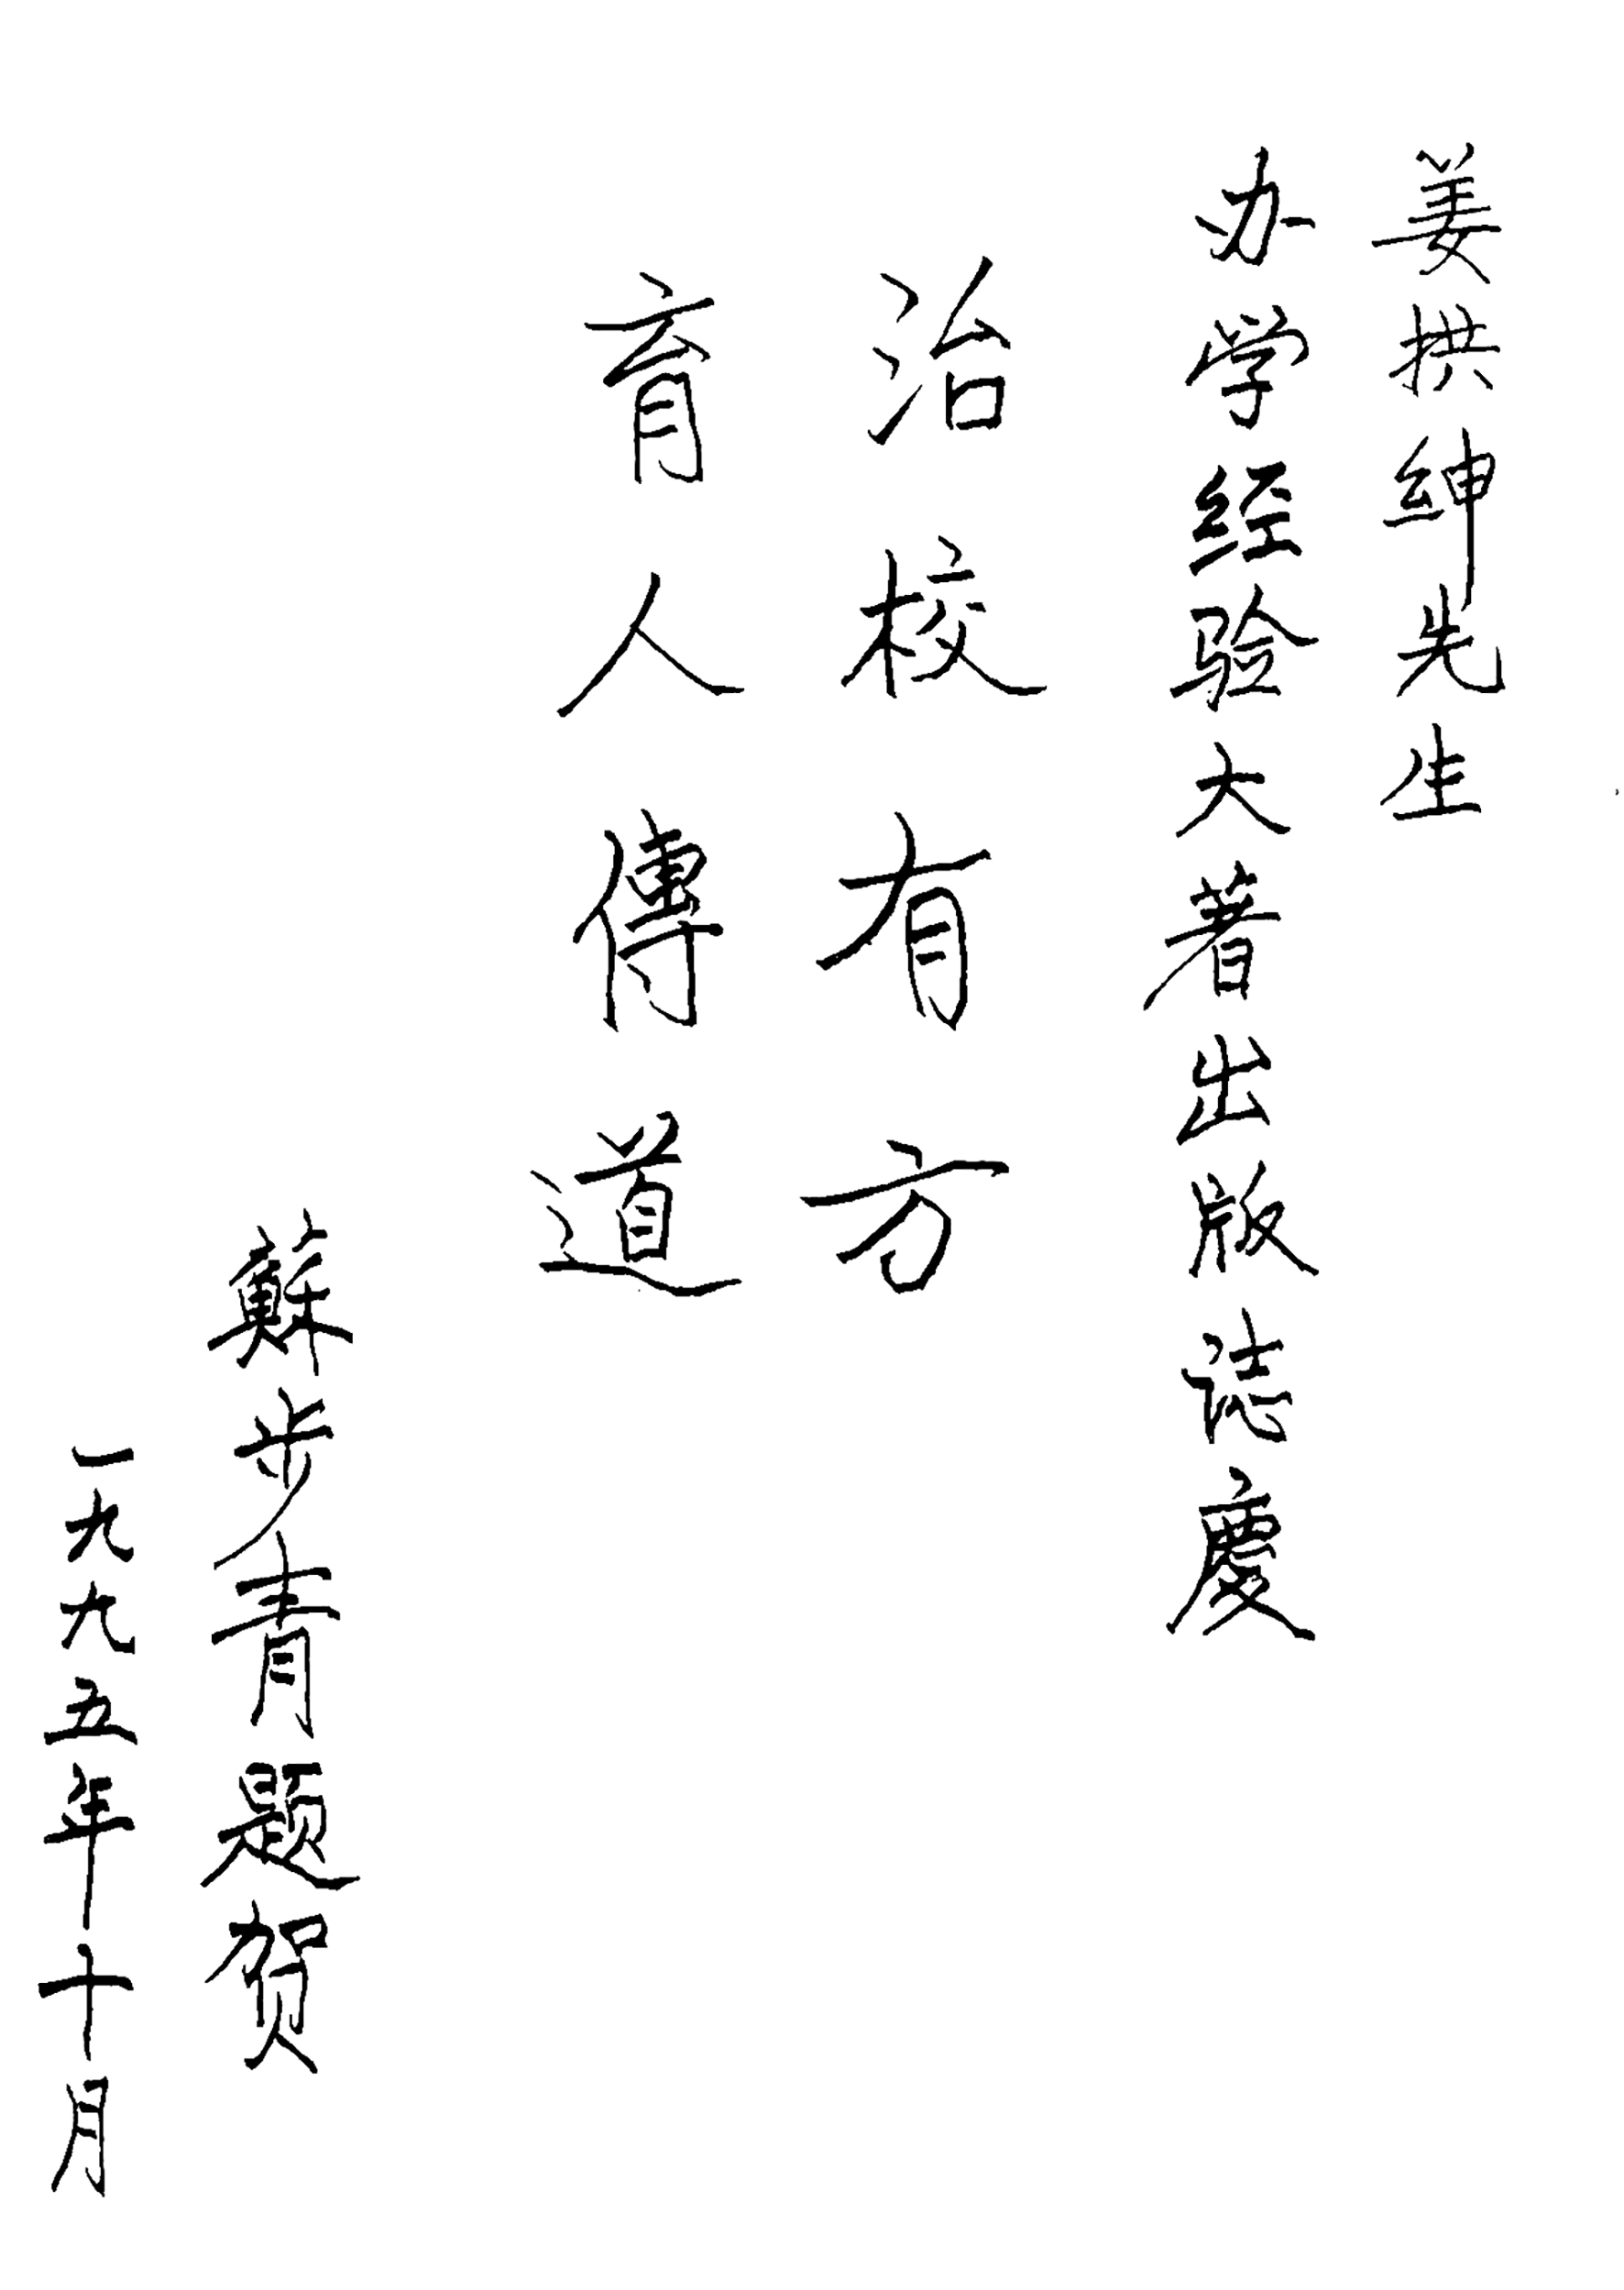 姜拱绅先生
办学经验大著出版誌慶
治校有方
育人傳道
蘇步青题贺
一九九五年十月